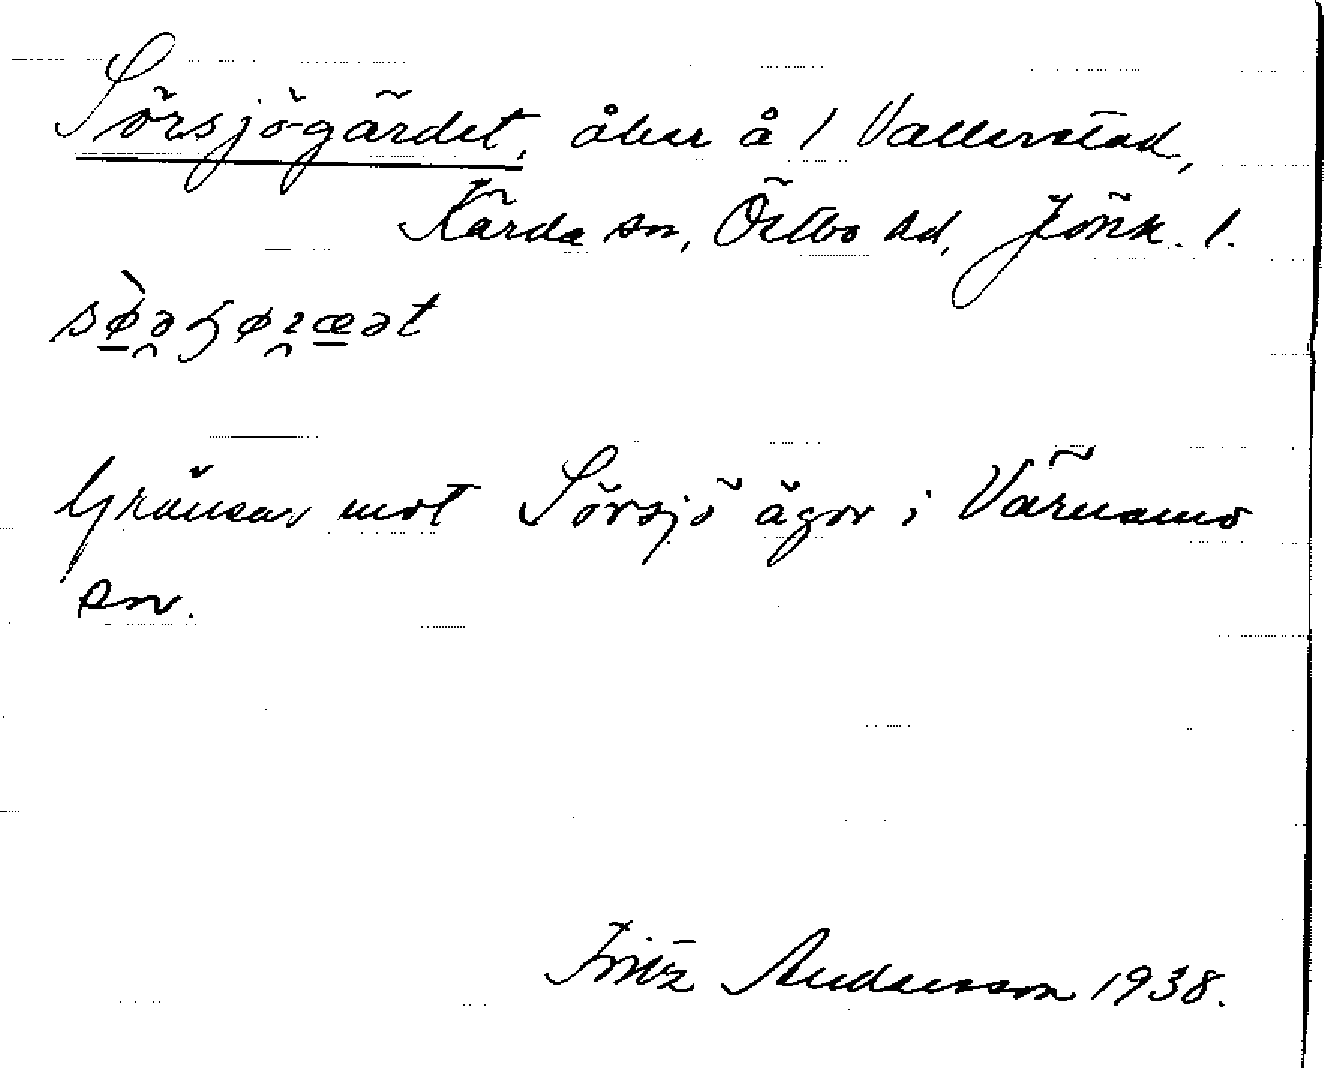 Sörsjögärdet, åker å 1 Vallerstad,
Kärda sn, Östbo hd, Jönk. l.
Gränsar mot Sörsjö ägor i Värnamo
sn.
Fritz Andersson 1938.